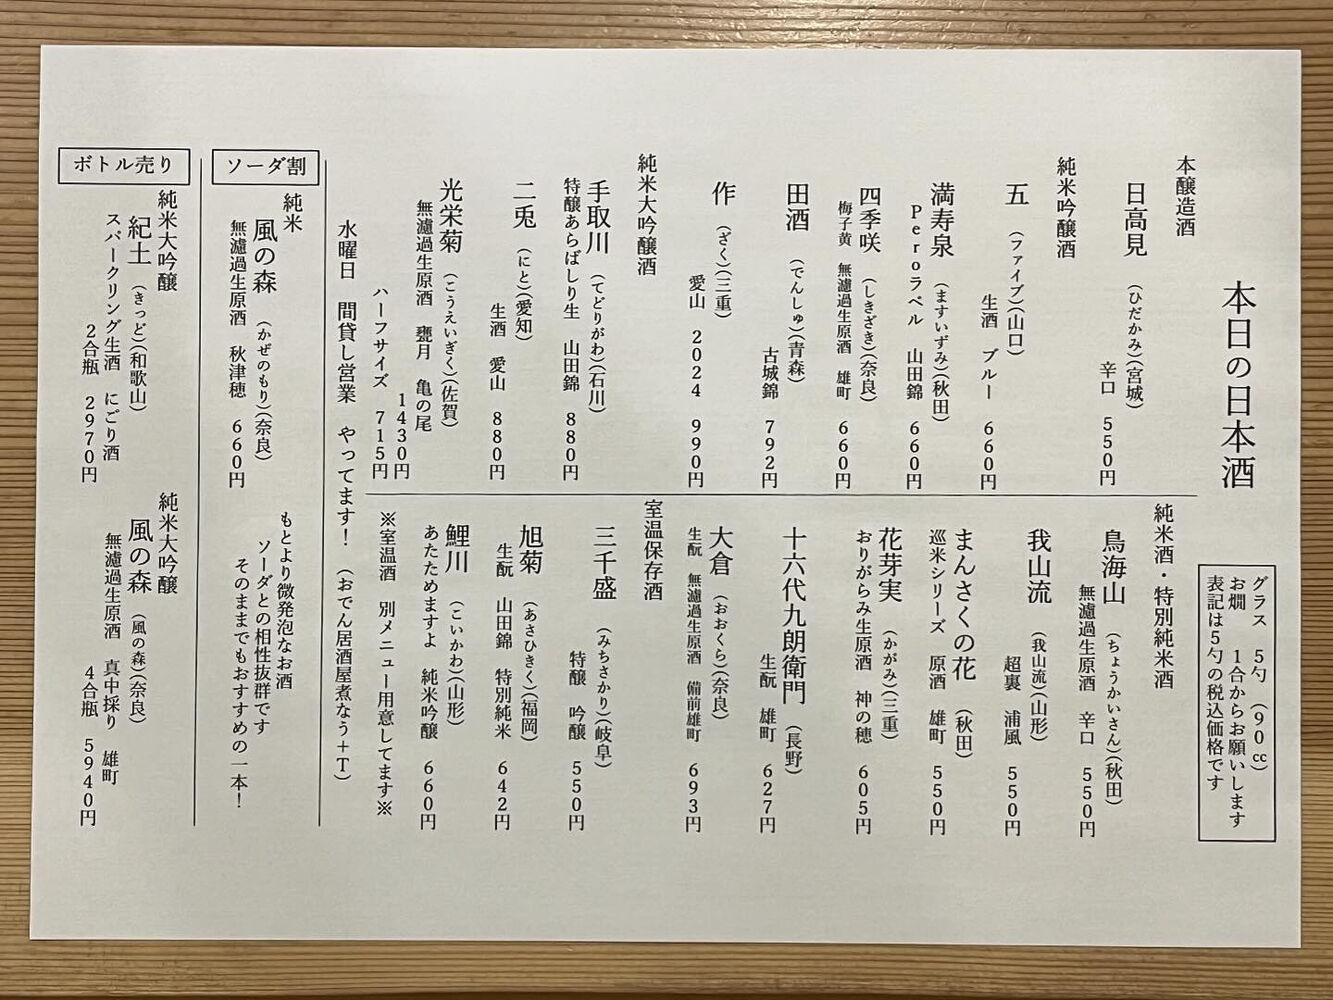 本日の日本酒
グラス 5勺 (90㏄)
お燗 1合からお願いします
表記は5勺の税込価格です
本醸造酒
日高見 (ひだかみ)(宮城)
辛口 550円
純米吟醸酒
五 (ファイブ)(山口)
生酒 ブルー 660円
満寿泉 (ますいずみ)(秋田)
Peroラベル 山田錦 660円
四季咲 (しきざき)(奈良)
梅子黄 無濾過生原酒 雄町 660円
田酒 (でんしゅ)(青森)
古城錦 792円
作 (ざく)(三重)
愛山 2024 990円
純米大吟醸酒
手取川 (てどりがわ)(石川)
特醸あらばしり生 山田錦 880円
二兎 (にと)(愛知)
生酒 愛山 880円
光栄菊 (こうえいぎく)(佐賀)
無濾過生原酒 甕月 亀の尾
1430円
ハーフサイズ 715円
純米酒・特別純米酒
鳥海山 (ちょうかいさん)(秋田)
無濾過生原酒 辛口 550円
我山流 (我山流)(山形)
超裏 浦風 550円
まんさくの花 (秋田)
巡米シリーズ 原酒 雄町 550円
花芽実 (かがみ)(三重)
おりがらみ生原酒 神の穂 605円
十六代九朗衛門 (長野)
生酛 雄町 627円
大倉 (おおくら)(奈良)
生酛 無濾過生原酒 備前雄町 693円
室温保存酒
三千盛 (みちさかり)(岐阜)
特醸 吟醸 550円
旭菊 (あさひきく)(福岡)
生酛 山田錦 特別純米 642円
鯉川 (こいかわ)(山形)
あたためますよ 純米吟醸 660円
※室温酒 別メニュー用意してます※
水曜日 間貸し営業 やってます! (おでん居酒屋煮なう+T)
ソーダ割
純米
風の森 (かぜのもり)(奈良)
無濾過生原酒 秋津穂 660円
もとより微発泡なお酒
ソーダとの相性抜群です
そのままでもおすすめの一本!
ボトル売り
純米大吟醸
紀土 (きっど)(和歌山)
スパークリング生酒 にごり酒
2合瓶 2970円
純米大吟醸
風の森 (風の森)(奈良)
無濾過生原酒 真中採り 雄町
4合瓶 5940円